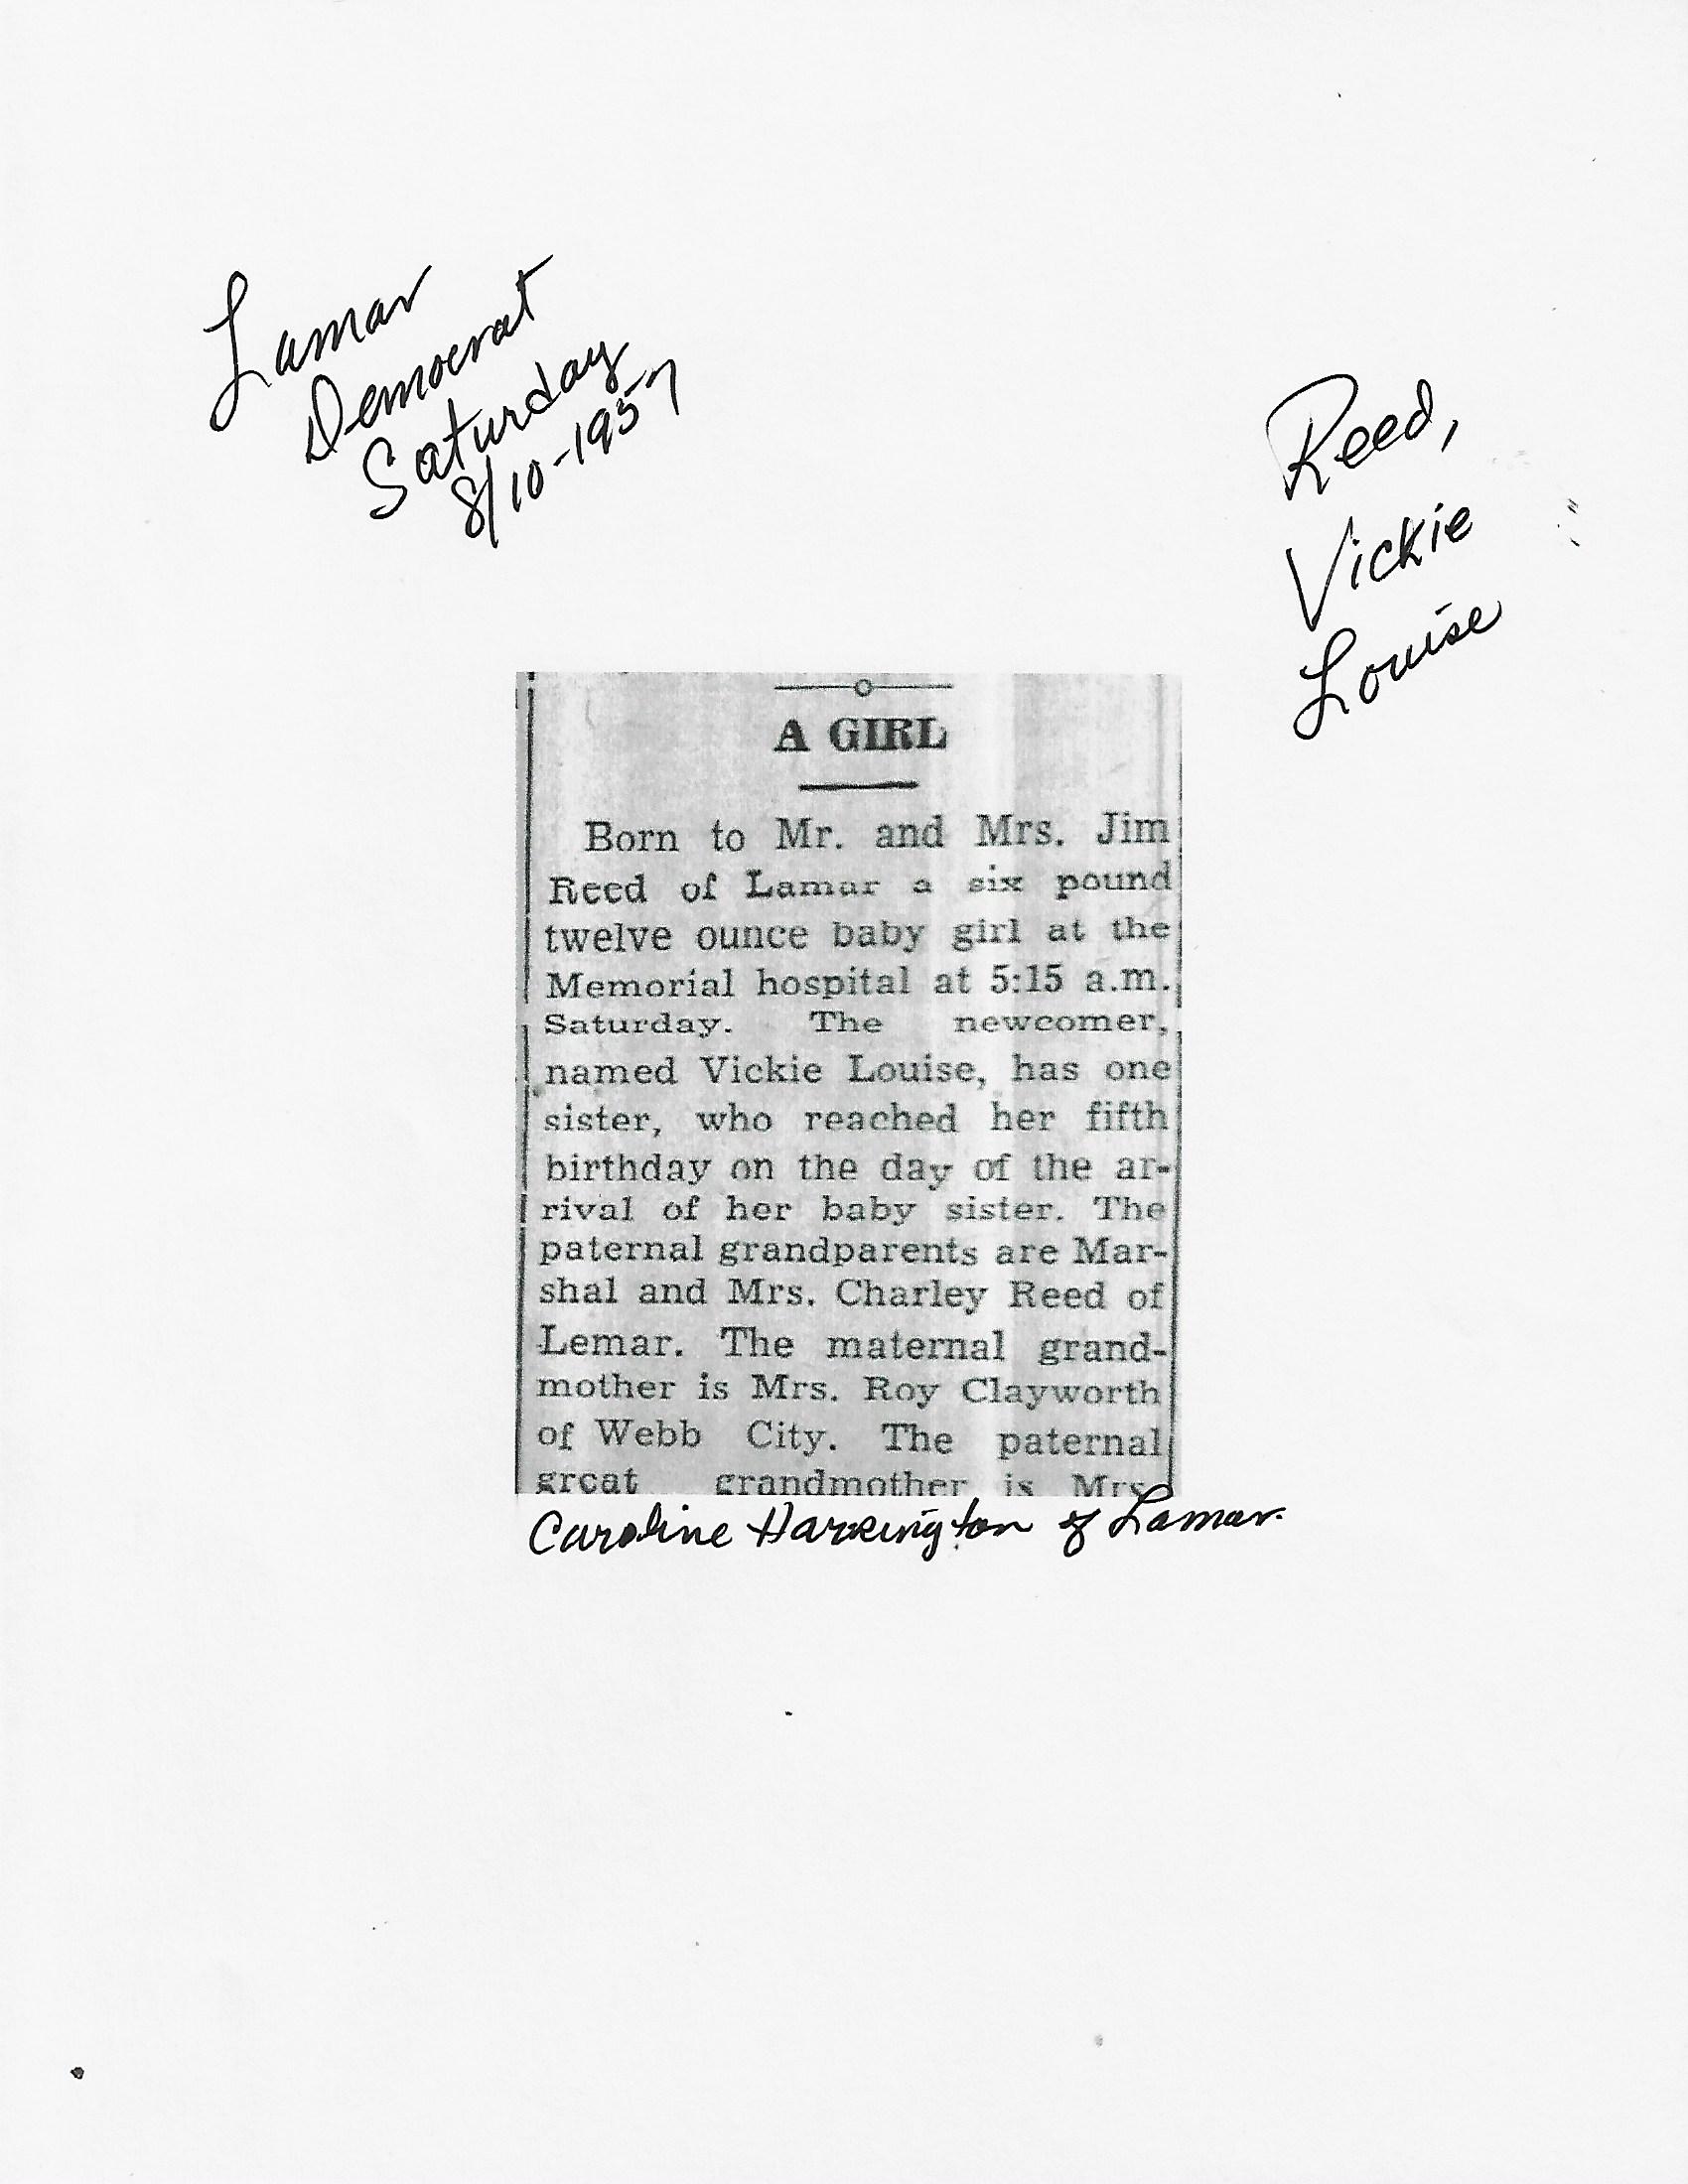 Lamar
Democrat
Saturday
8/10-1957
Reed,
Vickie
Louise
A GIRL
Born to Mr. and Mrs. Jim
Reed of Lamar a six pound
twelve ounce baby girl at the
Memorial hospital at 5:15 a.m.
Saturday. The newcomer,
named Vickie Louise, has one
sister, who reached her fifth
birthday on the day of the ar-
rival of her baby sister. The
paternal grandparents are Mar-
shal and Mrs. Charley Reed of
Lemar. The maternal grand-
mother is Mrs. Roy Clayworth
of Webb City. The paternal
great grandmother is Mrs.
Caroline of Lamar.